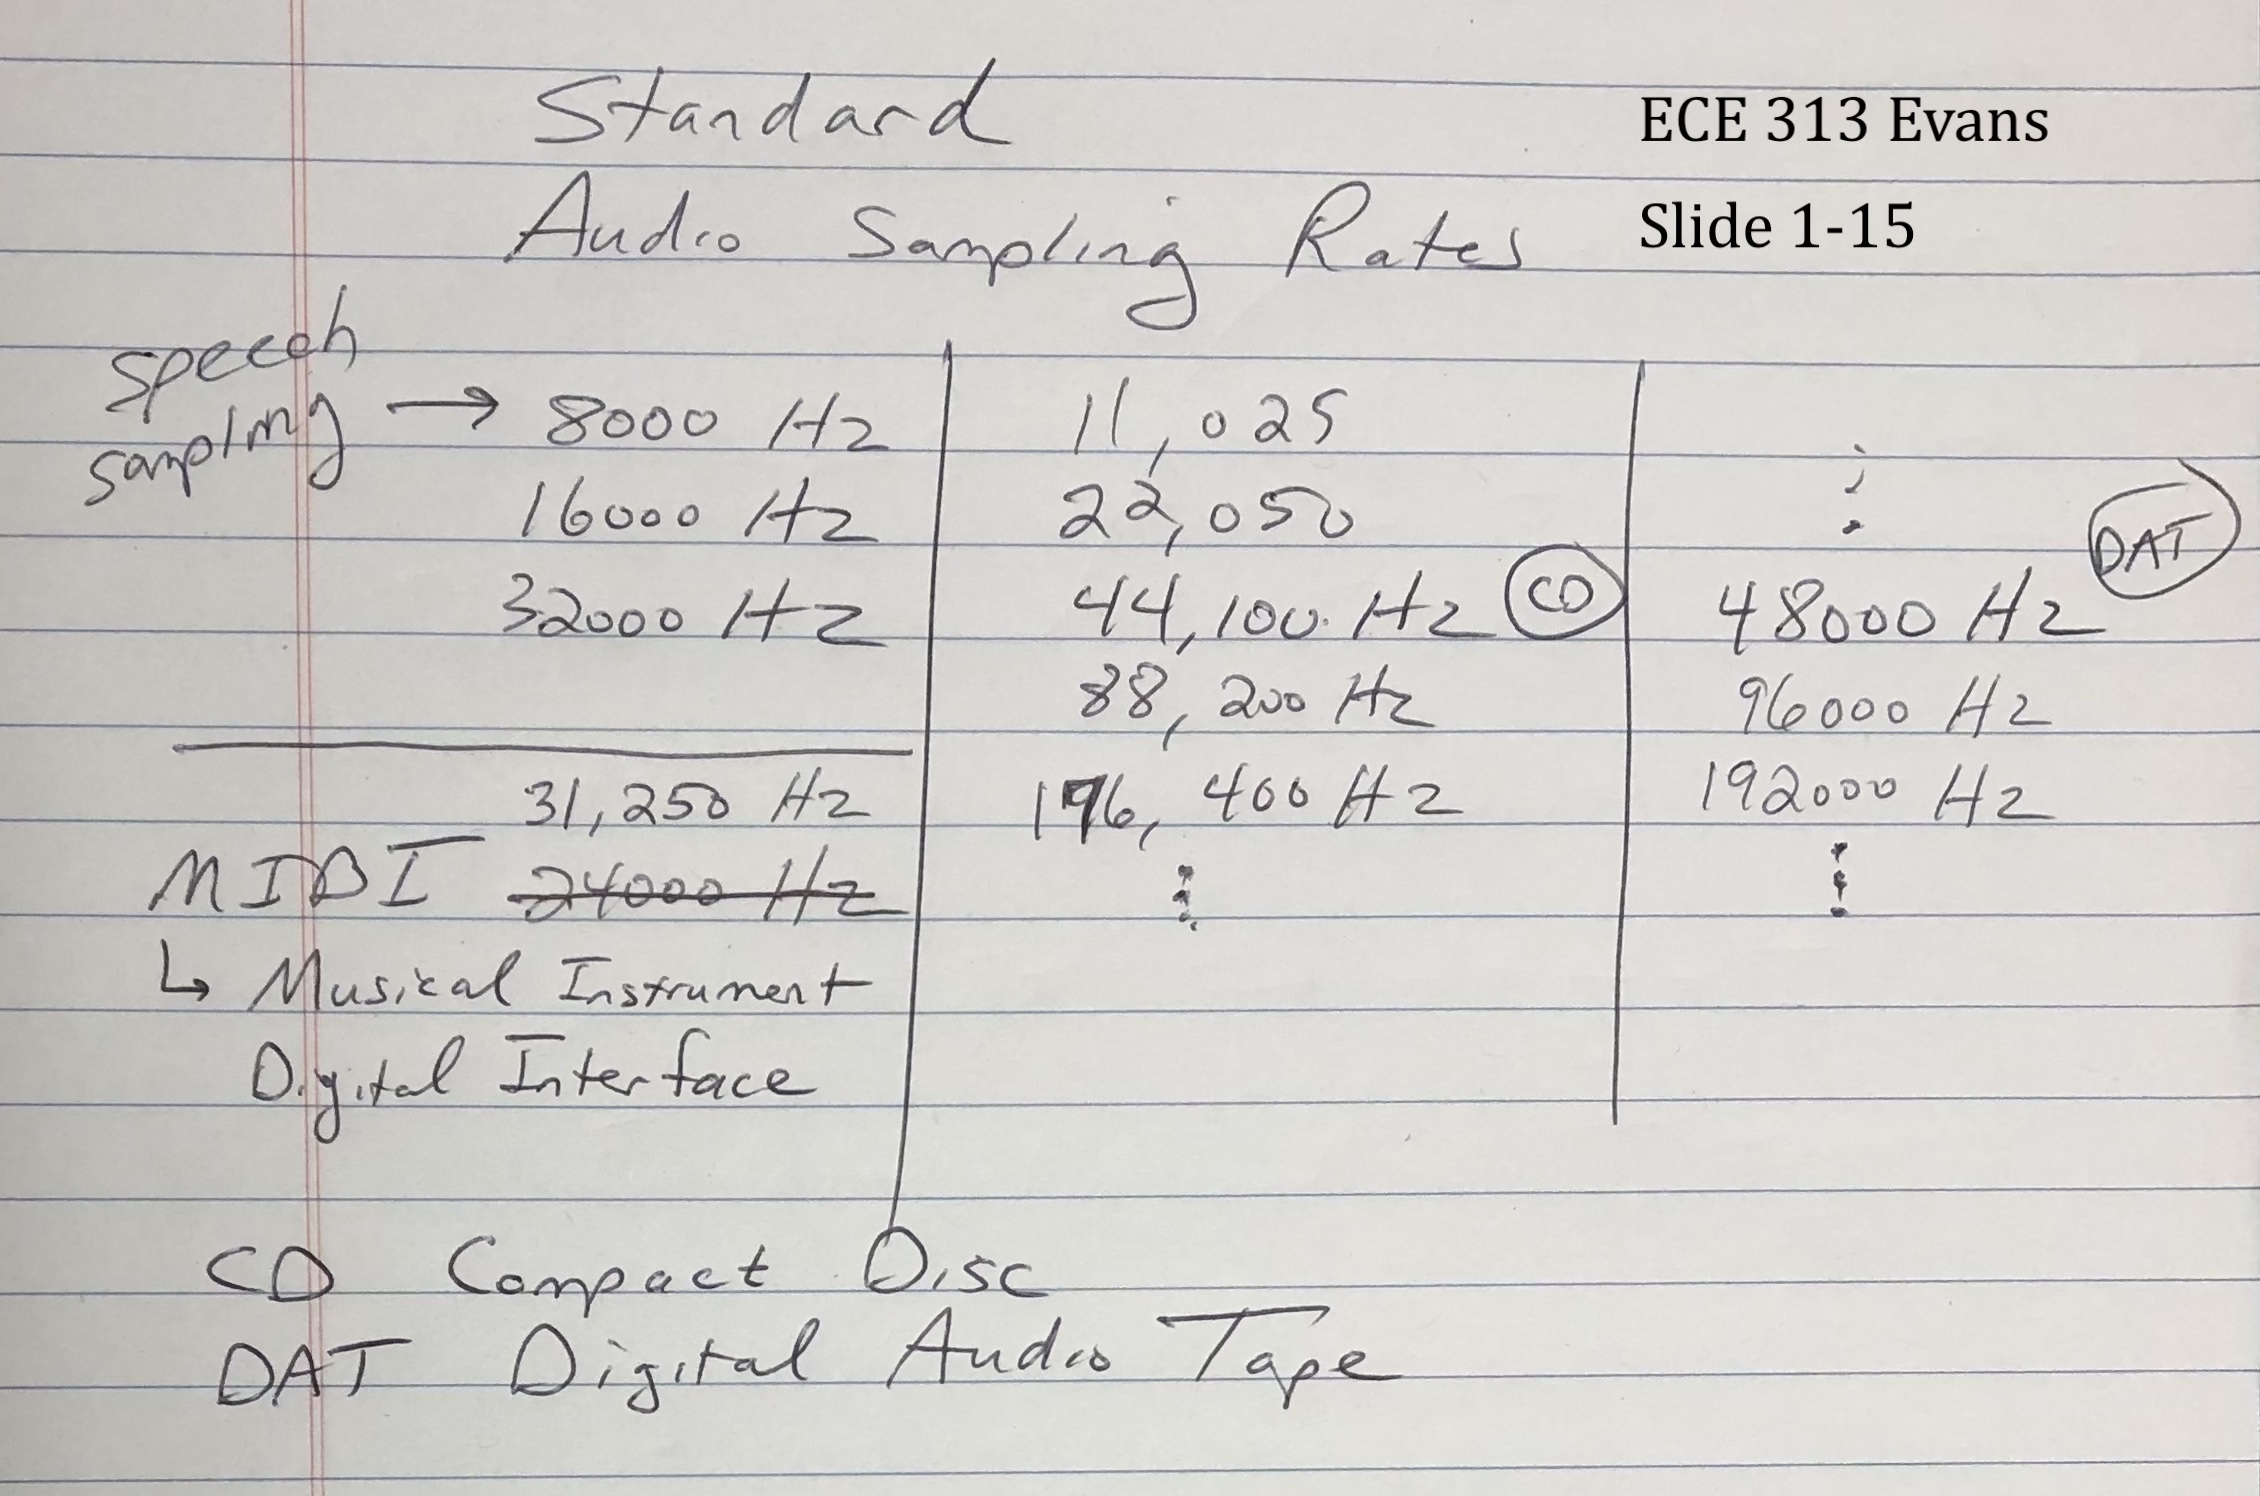 Standard
ECE 313 Evans
Audio Sampling Rates
Slide 1-15
speech
sampling → 8000 Hz
16000 Hz
32000 Hz
31,250 Hz
MIDI ~~24000 Hz~~
↳ Musical Instrument
Digital Interface
11,025
22,050
44,100 Hz CD
88,200 Hz
176,400 Hz
⋮
⋮
DAT
48000 Hz
96000 Hz
192000 Hz
⋮
CD Compact Disc
DAT Digital Audio Tape